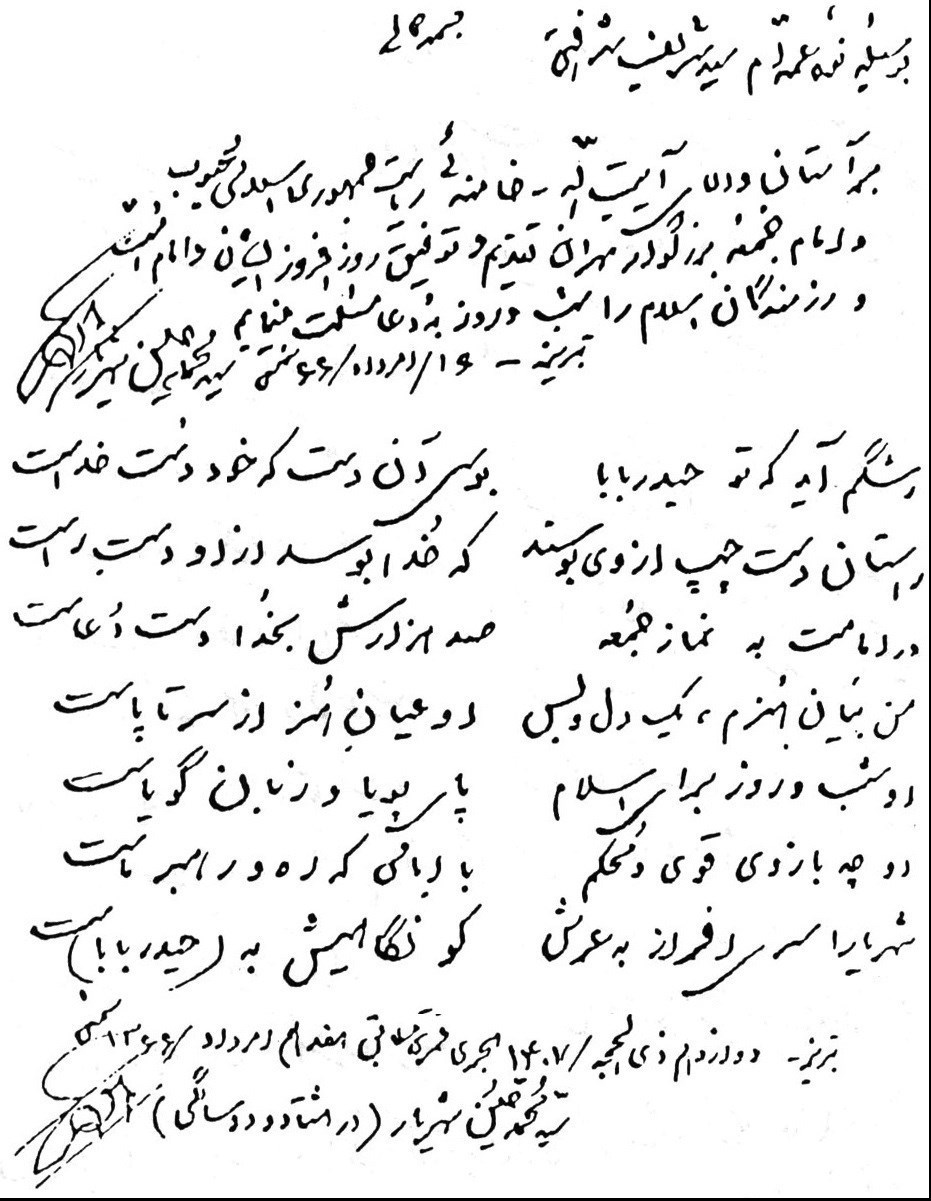 بسمه تعالی
بوسیله نوه عمه‌ام سید شریف شرافتی
بر آستان والای آیت الله - خامنه‌ئی ریاست جمهوری اسلامی محبوب
و امام جمعه بزرگوار تهران تقدیم و توفیق روز افزون ایشان و امام امت
و رزمندگان اسلام را شب و روز به دعا مسئلت مینمایم
تبریز - ۱۶/امرداد/۶۶ شمسی سید محمد حسین شهریار
رشگم آید که تو حیدربابا بوسی آن دست که خود دست خداست
راستان دست چپ از وی بوسند که خدا بوسد از او دست راست
در امامت به نماز جمعه صد هزارش بخدا دست دعاست
من بیان هنرم، یک دل و بس او عیان هنر از سر تا پاست
او شب و روز برای اسلام پای پویا و زبان گویاست
او چه بازوی قوی و محکم با امامی که ره و رهبر ماست
شهریارا سری افراز به عرش کو نگاهیش به (حیدربابا) ست
تبریز - دوازدهم ذی الحجه /۱۴۰۷ هجری قمری مطابق هفدهم امرداد /۱۳۶۶ شمسی
سید محمد حسین شهریار (در هشتاد و دو سالگی)